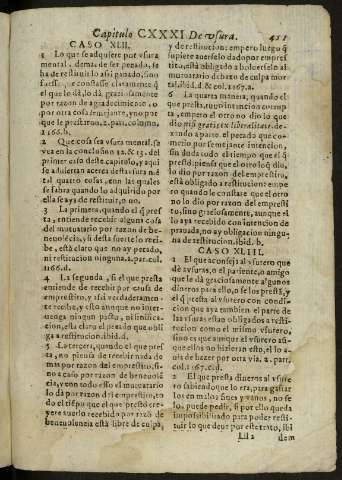 Capitulo CXXXI De vsura. 451
CASO XLII.
1 Lo que se adquiere por vsura
mental, demas de ser pecado, se
ha de restituir lo assi ganado, sino
fuesse que constasse claramente q̃
el que lo dió, lo dá graciosamente
por razon de agradecimiento, o
por otra cosa semejante, y no por
que le prestaron. 2. part. column.
1165. b.
2 Que cosa sea vsura mental, se
vea en la conclusion 12. & 13. del
primer caso deste capitulo, y aqui
se aduiertan acerca desta vsura mē
tal quatro cosas, con las quales
se sabra quando lo adquirido por
ella se aya de restituir, o no.
3 La primera, quando el q̃ pres
ta, entiende recibir algun cosa del
mutuatario por razon de be-
neuolēcia, si desta suerte lo reci-
be, està claro que no ay pecado,
ni restitucion ninguna. 2. par. col.
1166. d.
4 La segunda, si el que presta
entiende de recebir por causa de
emprestito, y assi verdaderamen-
te recibe, y esto aunque no inter-
uenga ningun pacto, ni insinua-
cion, està claro el pecado que obli
ga a restitucion. ibid. d.
5 La tercera, quando el que pres
ta, no piensa de recebir nada do
mas por razon del emprestito, si-
no a caso por razon de beneuolē
cia, y con todo esso el mutuatario
lo dà por razon del emprestito, en
todo el tiēpo que el que prestó cre-
yere auerlo recebido por razō de
beneuolencia està libre de culpa,
y de restitucion: empero luego q̃
supiere auerselo dado por empres
tito, està obligado a boluerselo al
mutuatario debaxo de culpa mor
tal. ibid. d. & col. 1167. a.
6 La quarta manera, quando el
que presta, tuuo intencion corrup
ta, empero el otro no dio lo que
dio por gratitex liberalitate, de-
xando a parte el pecado que co-
metio por semejante intencion,
sin duda todo el tiempo que el q̃
prestó: piensa que el otro lo q̃ dio,
lo dio por razon del emprestito,
està obligado a restitucion: empe
ro quando le constare que el otro
no lo dio por razon del empresti
to, sino graciosamente, aunque el
lo aya recebido con intencion de
prauada, no ay obligacion ningu-
na de restitucion. ibid. b.
CASO XLIII.
1 El que aconseja al vsurero que
dè a vsuras, o el pariente, o amigo
que le dà graciosamente algunos
dineros para ello, o se los prestò, y
el q̃ presta al vsurero con condi-
cion que aya tambien el parte de
las vsuras estan obligados a resti-
tucion como el mismo vsurero,
sino es que aunque el vsurero assi
que ellos no hizieran esto, lo a-
uia de hazer por otra via. 2. part.
col. 1167. c. d.
2 El que presta dineros al vsure
ro sabiendo que lo era, para gastar
los en malos fines y vanos, no se
los puede pedir, si por ello queda
impossibilitado para poder resti-
tuir lo que deue por este trato, ibi
Lll 2 dem